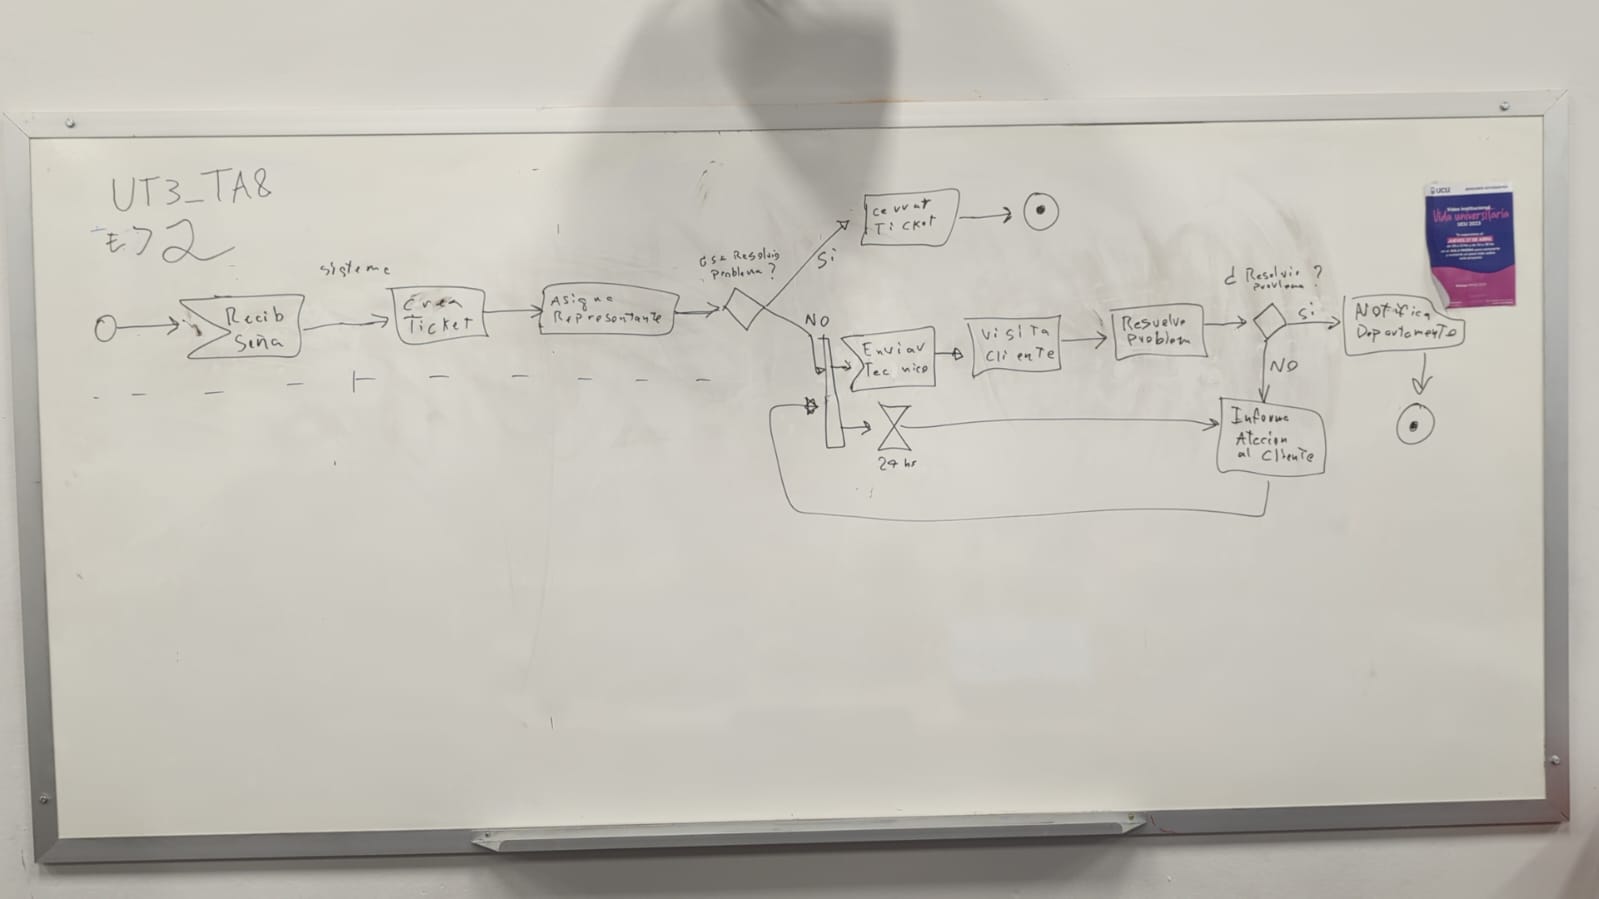 UT3_TA8
EJ 2
sisteme
Recib
Seña
Crea
Ticket
Asigna
Representante
¿Se Resolvio
Problema?
Si
cerrar
Ticket
NO
Enviar
Tecnico
Visita
Cliente
Resuelve
Problem
¿ Resolvio ?
Problema
Si
Notifica
Departamento
NO
24 hs
Informa
Atecion
al Cliente
UCU
Vida universitaria
UCU 2023